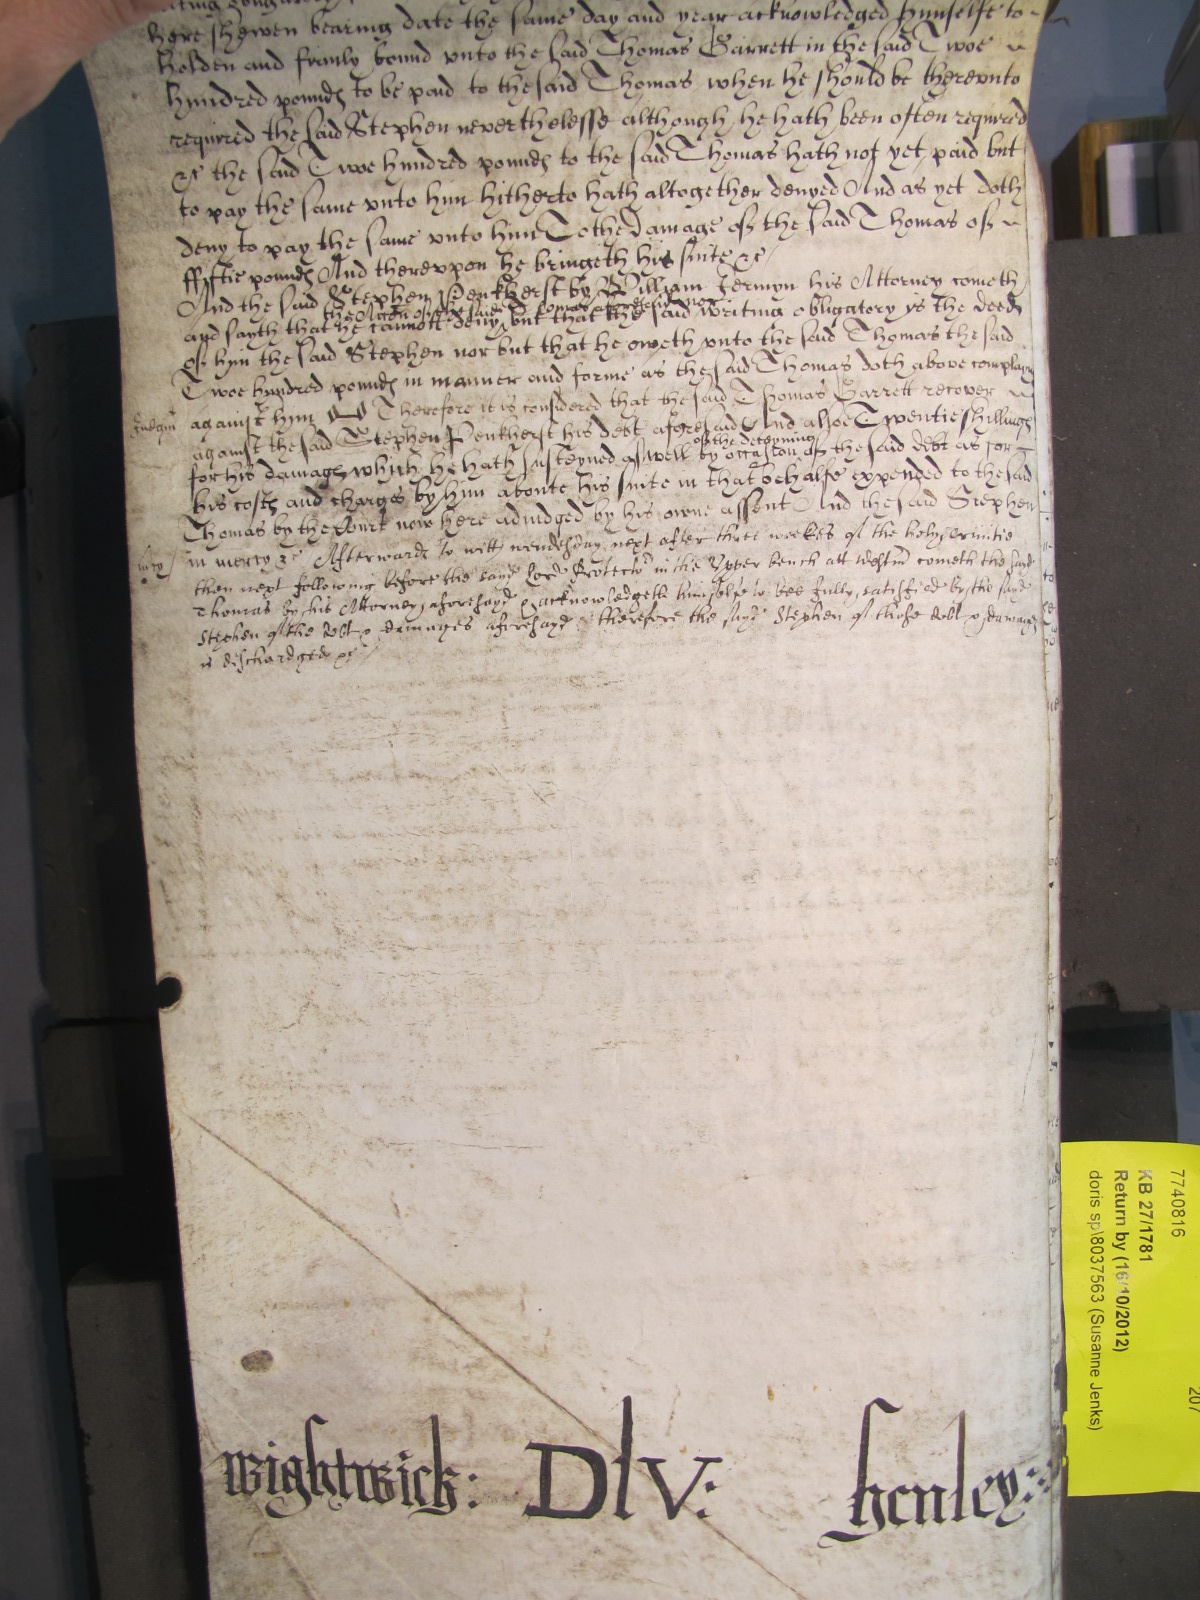 here shewen bearing date the same day and year acknowledged himselfe to
holden and firmly bound vnto the said Thomas Garrett in the said Twoe
hundred pounds to be paid to the said Thomas when he should be therevnto
required the said Stephen neverthelesse although he hath been often required
&c the said Twoe hundred pounds to the said Thomas hath not yet paid but
to pay the same vnto him hitherto hath altogether denyed And as yet doth
deny to pay the same vnto him To the Damage of the said Thomas of
ffiftie pounds And therevpon he bringeth his suite &c
And the said Stephen Penkherst by William Jermyn his Attorney cometh
the Accon of the said Thomas aforesaid nor
and sayth that he cannott deny but that the said writing obligatory ys the deed
of him the said Stephen nor but that he oweth vnto the said Thomas the said
Twoe hundred pounds in manner and forme as the said Thomas doth above complain
Judgmt against him Therefore it is considered that the said Thomas Garrett recover
against the said Stephen Penkherst his debt aforesaid And alsoe Twentie shillings
of the deteyning
for his damages which he hath susteyned aswell by occasion of the said debt as for
his costs and charges by him aboute his suite in that behalfe expended to the said
Thomas by the Court now here adiudged by his owne assent And the said Stephen
mcy in mercy &c Afterwards to witt wendsday next after three weekes of the holy Trinitie
then next following before the sayd Lord Protector in the Vpper bench att Westm cometh the sayd
Thomas by his Attorney aforesayd & acknowledgeth himselfe to bee fully satisfied by the sayd
Stephen of the debt & damages aforesayd therefore the sayd Stephen of those debt & damages
is dischardged &c
wightwick: DLV: henley:
7740816
KB 27/1781
Return by (16/10/2012)
doris sp\8037563 (Susanne Jenks)
207